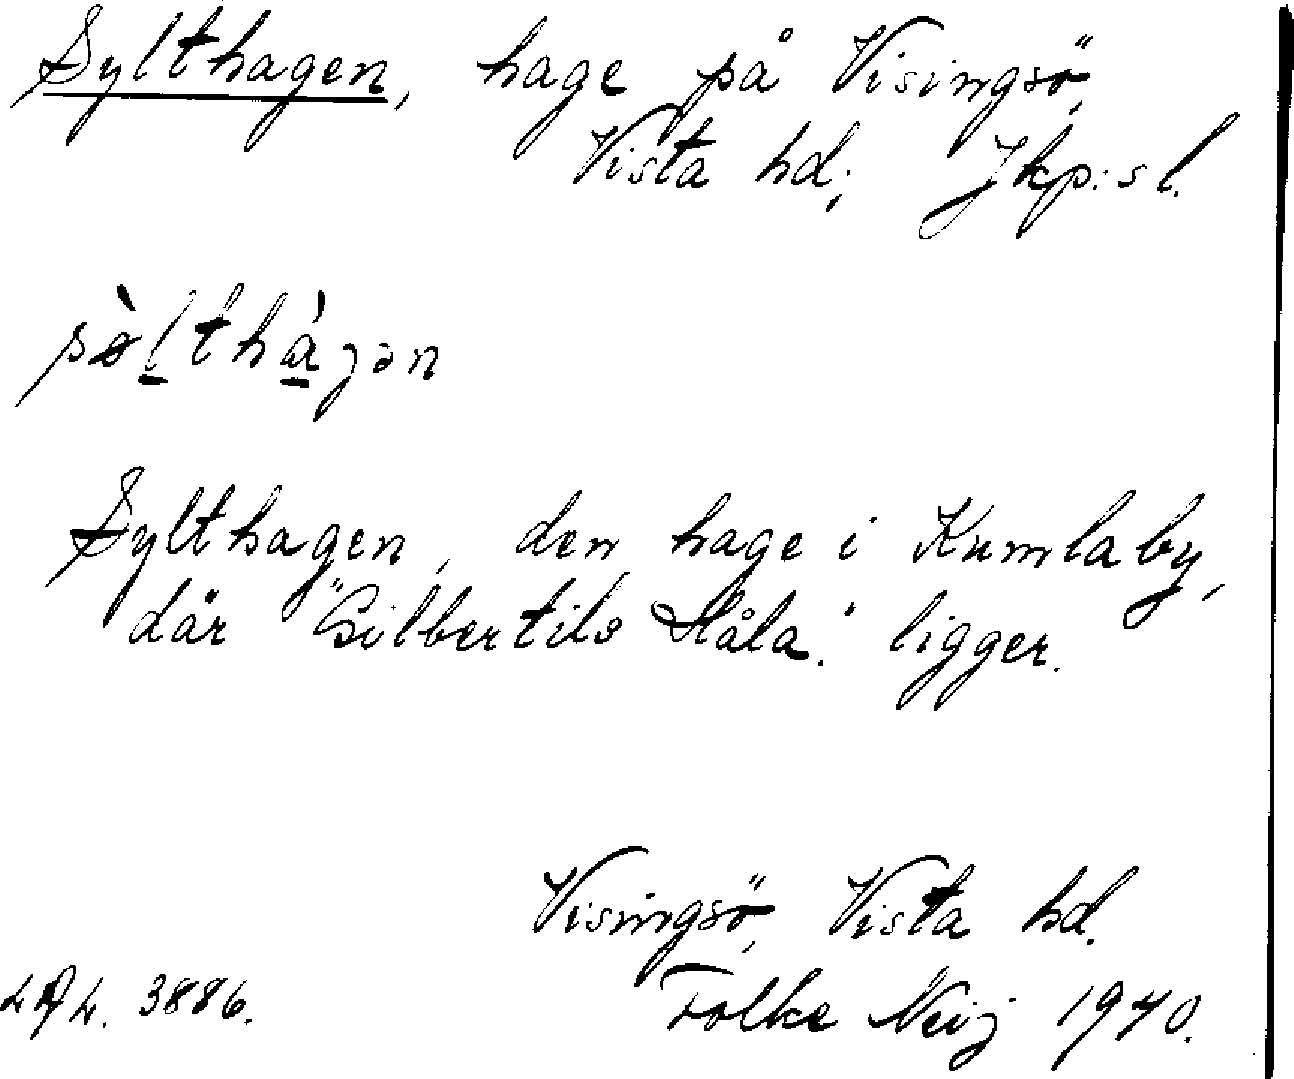 Sylthagen, hage på Visingsö,
Vista hd; Jkp:sl.
sø̀lthàgən
Sylthagen, den hage i Kumlaby,
där "Gilbertils Håla." ligger.
Visingsö, Vista hd.
Folke Neij 1940.
3886.